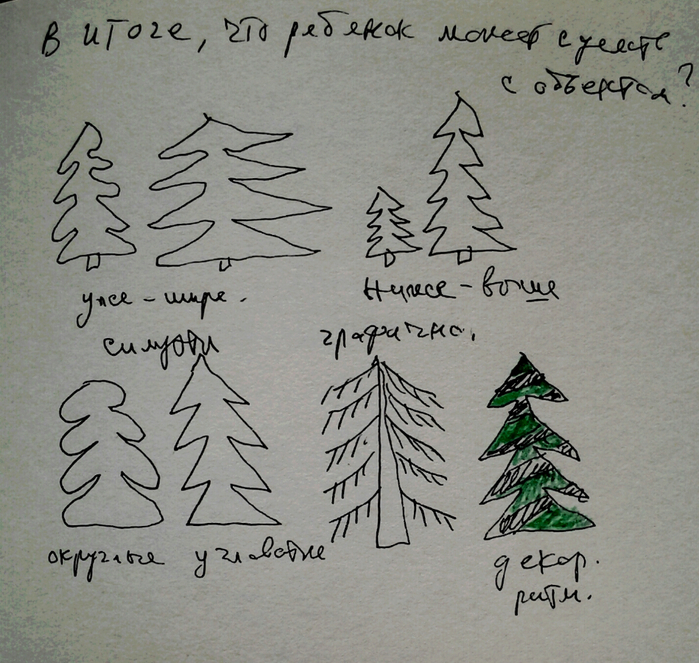 В итоге, что ребенок может сделать
с объектом?
уже - шире.
Ниже - выше
силуэты
графично.
округлые
угловатые
декор.
ритм.